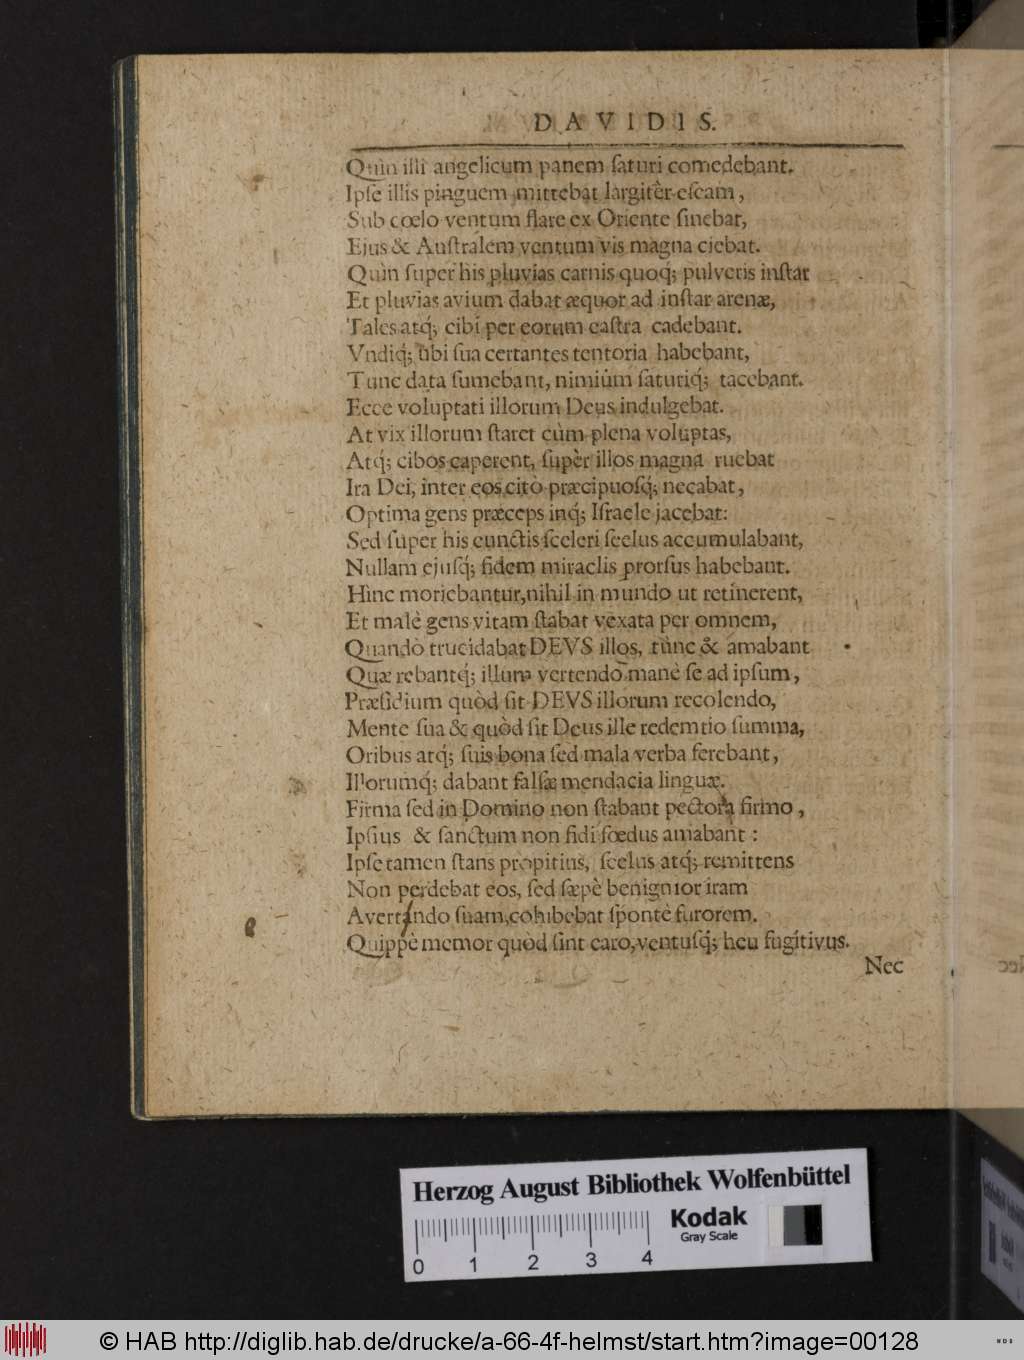 DAVIDIS.
Quin illi angelicum panem ſaturi comedebant.
Ipſe illis pinguem mittebat largitèr eſcam,
Sub cœlo ventum flare ex Oriente ſinebat,
Ejus & Auſtralem ventum vis magna ciebat.
Quin ſuper his pluvias carnis quoq́; pulveris inſtar
Et pluvias avium dabat æquor ad inſtar arenæ,
Tales atq́; cibi per eorum caſtra cadebant.
Vndiq́; ubi ſua certantes tentoria habebant,
Tunc data ſumebant, nimiùm ſaturiq́; tacebant.
Ecce voluptati illorum Deus indulgebat.
At vix illorum ſtaret cùm plena voluptas,
Atq́; cibos caperent, ſupèr illos magna ruebat
Ira Dei, inter eos citò præcipuoſq́; necabat,
Optima gens præceps inq́; Iſraele jacebat:
Sed ſuper his cunctis ſceleri ſcelus accumulabant,
Nullam ejuſq́; fidem miraclis prorſus habebant.
Hinc moriebantur, nihil in mundo ut retinerent,
Et malè gens vitam ſtabat vexata per omnem,
Quandò trucidabat DEVS illos, tùnc & amabant
Quæ rebantq́; illum vertendo manè ſe ad ipſum,
Præſidium quòd ſit DEVS illorum recolendo,
Mente ſua & quòd ſit Deus ille redemtio ſumma,
Oribus atq́; ſuis bona ſed mala verba ferebant,
Illorumq́; dabant falſæ mendacia linguæ.
Firma ſed in Domino non ſtabant pectora firmo,
Ipſius & ſanctum non fidi fœdus amabant:
Ipſe tamen ſtans propitius, ſcelus atq́; remittens
Non perdebat eos, ſed ſæpè benignior iram
Avertando ſuam, cohibebat ſpontè furorem.
Quippè memor quòd ſint caro, ventuſq́; heu fugitivus.
Nec
Herzog August Bibliothek Wolfenbüttel
Kodak
Gray Scale
0 1 2 3 4
© HAB http://diglib.hab.de/drucke/a-66-4f-helmst/start.htm?image=00128